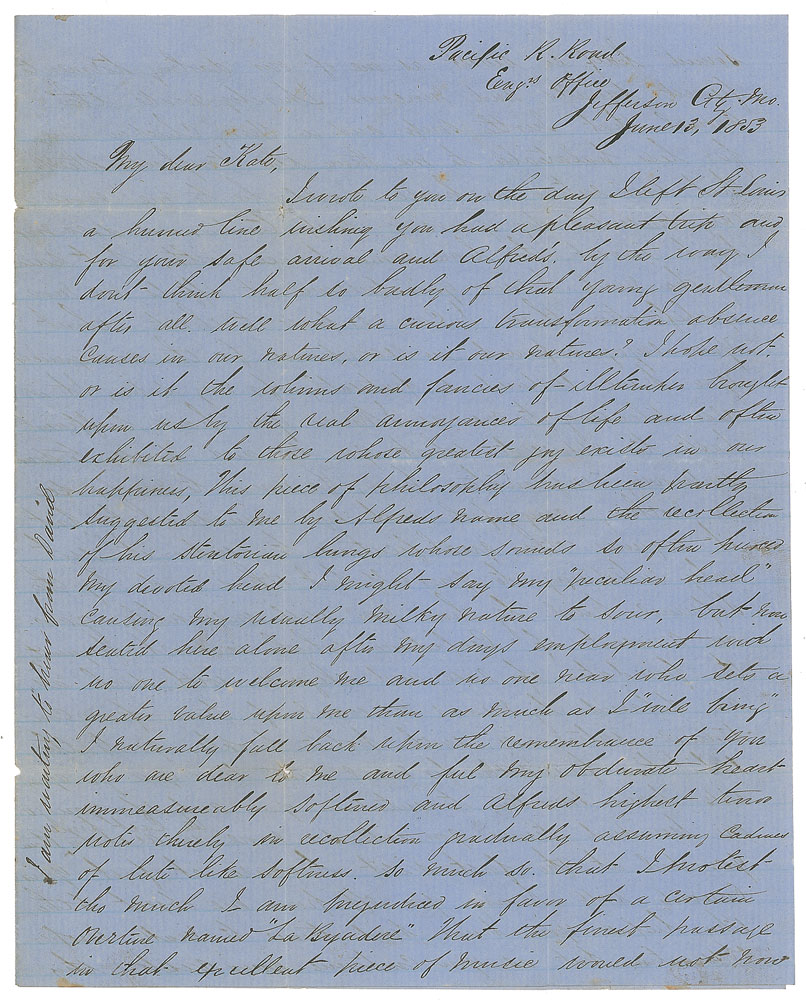 Pacific R. Road
Engrs Office
Jefferson City Mo.
June 13, 1853
My dear Kate,
I wrote to you on the day I left St Louis
a hurried line wishing you had a pleasant trip and
for your safe arrival and Alfred's, by the way I
dont think half so badly of that young gentleman
after all. well what a curious transformation absence
causes in our natures, or is it our natures? I hope not.
or is it the whims and fancies of illtemper brought
upon us by the real annoyances of life and often
exhibited to those whose greatest joy exists in our
happiness, This piece of philosophy has been partly
suggested to me by Alfreds name and the recollection
of his stentorian lungs whose sounds so often pierced
my devoted head I might say my "peculiar head"
causing my usually milky nature to sour, but now
seated here alone after my days employment with
no one to welcome me and no one near who sets a
greater value upon me than as much as I "will bring"
I naturally fall back upon the remembrance of you
who are dear to me and feel my obdurate heart
immeasureably softened and Alfreds highest tenor
notes thereby in recollection gradually assuming cadences
of lute like softness. so much so. that I protest
tho much I am prejudiced in favor of a certain
Overture named "La Byadere" that the finest passage
in that excellent piece of music would not now
I am waiting to hear from David